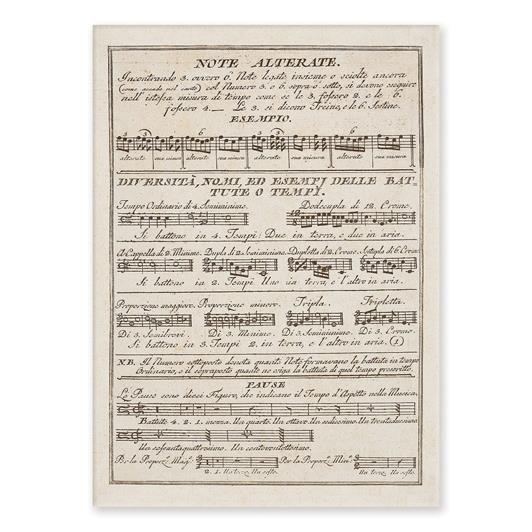 NOTE ALTERATE.
Incontrando 3. ovvero 6. Note legate insieme o sciolte ancora
(come accade nel canto) col Numero 3. o 6. sopra o sotto, si devono eseguire
nell' istessa misura di tempo come se le 3. fossero 2. e le 6.
fossero 4. — Le 3. si dicono Treine, e le 6. Sestine.
ESEMPIO.
3 3 6 3 3 6
alterate sua misura alterate sua misura alterate sua misura alterate sua misura
DIVERSITÀ, NOMI, ED ESEMPJ DELLE BAT-
TUTE O TEMPI.
Tempo Ordinario di 4. Semiminime. Dodecupla di 12. Crome.
Si battono in 4. Tempi: Due in terra, e due in aria.
A Cappella di 2. Minime. Dupla di 2. Semiminime. Dupletta di 2. Crome. Sestupla di 6. Crome
Si battono in 2. Tempi Uno in terra, e l'altro in aria.
Proporzione maggiore. Proporzione minore. Tripla. Tripletta.
Di 3. Semibrevi. Di 3. Minime. Di 3. Semiminime. Di 3. Crome.
Si battono in 3. Tempi 2. in terra, e l'altro in aria. (1)
N.B. Il Numero sottoposto denota quante Note formavano la battuta in tempo
Ordinario, e il sopraposto quante ne esiga la battuta di quel tempo prescritto.
PAUSE
Le Pause sono diese Figure, che indicano il Tempo d'Aspetto nella Musica.
Battute 4. 2. 1. mezza. Un quarto. Un ottavo. Un sedicesimo. Un trentaduesimo
Un sessantaquattresimo. Un centoventottesimo.
Per la Proporz.e Mag.e Per la Proporz.e Min.e
2. 1. Un terzo. Un sesto. Un terzo. Un sesto.